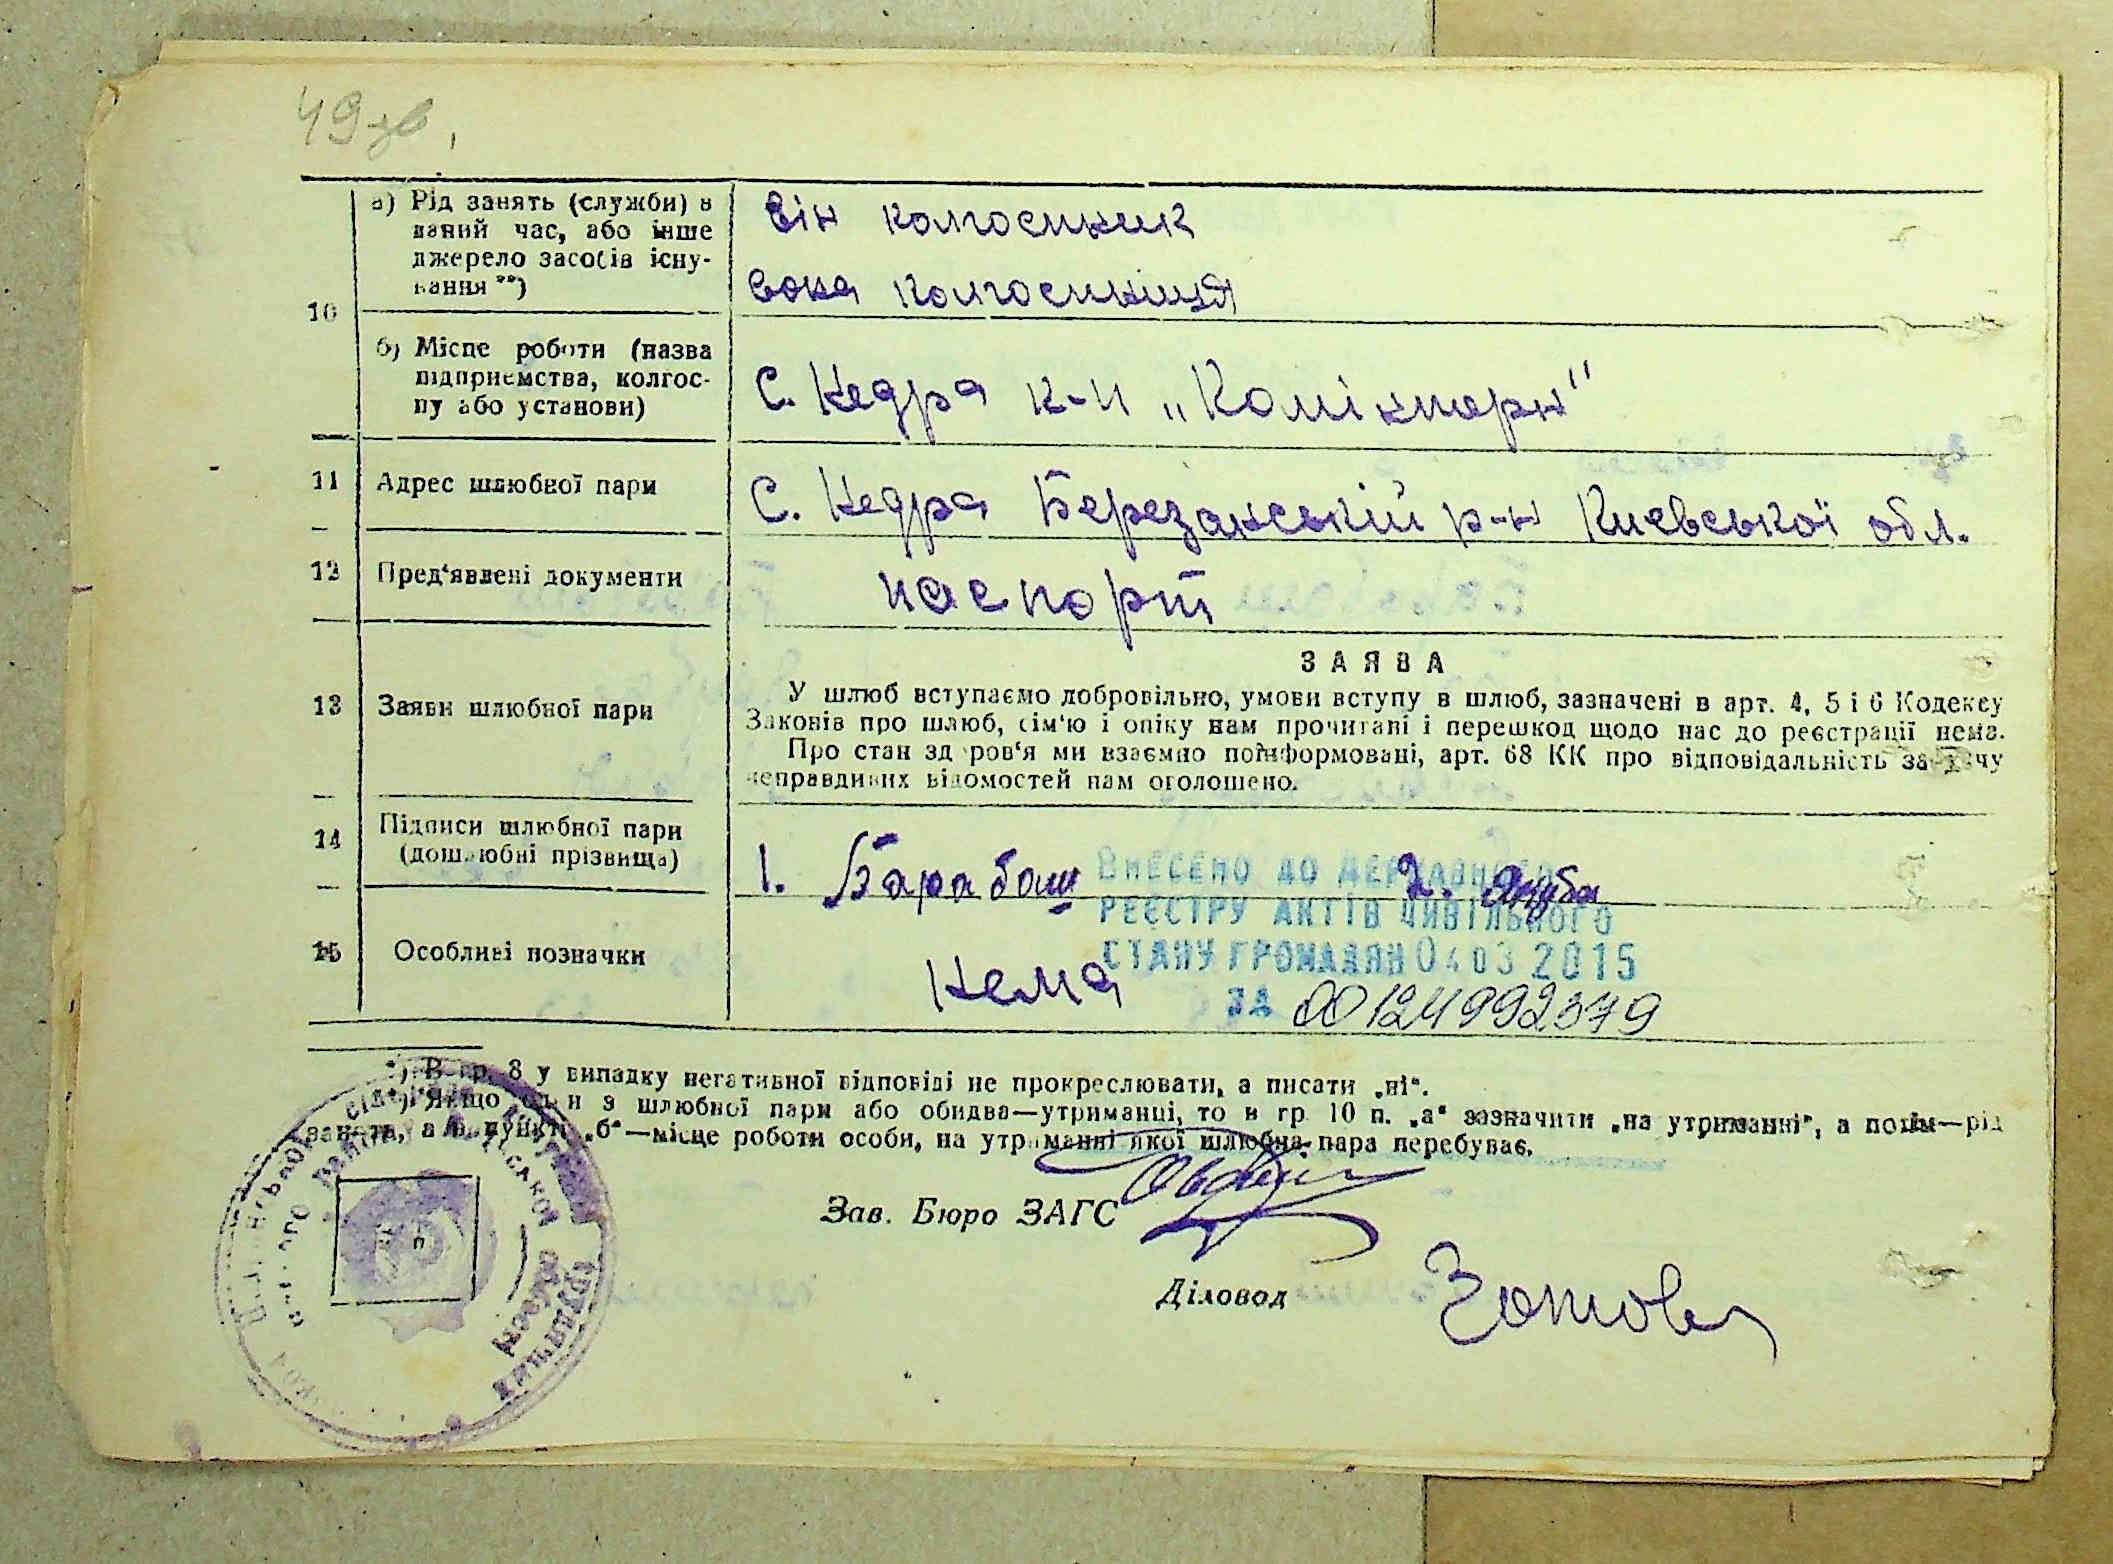 49 зв.
10
а) Рід занять (служби) в
даний час, або інше
джерело засобів існу-
вання **)
Він колгоспник
Вона колгоспниця
б) Місце роботи (назва
підприємства, колгос-
пу або установи)
С. Недра к-п „Комінтерн"
11 Адрес шлюбної пари
С. Недра Березанський р-н Киевської обл.
12 Пред'явлені документи
паспорт
13 Заяви шлюбної пари
ЗАЯВА
У шлюб вступаємо добровільно, умови вступу в шлюб, зазначені в арт. 4, 5 і 6 Кодексу
Законів про шлюб, сім'ю і опіку нам прочитані і перешкод щодо нас до реєстрації нема.
Про стан здоров'я ми взаємно поінформовані, арт. 68 КК про відповідальність за дачу
неправдивих відомостей нам оголошено.
14 Підписи шлюбної пари
(дошлюбні прізвища)
1. Барабаш 2.
ВНЕСЕНО ДО ДЕРЖАВНОГО
РЕЄСТРУ АКТІВ ЦИВІЛЬНОГО
СТАНУ ГРОМАДЯН 04 03 2015
ЗА 00124992379
15 Особливі позначки
Нема
*) В гр. 8 у випадку негативної відповіді не прокреслювати, а писати „ні".
**) Якщо один з шлюбної пари або обидва—утриманці, то в гр. 10 п. „а" зазначити „на утриманні", а потім—рід
занять, а в пункті „б"—місце роботи особи, на утриманні якої шлюбна пара перебуває.
Зав. Бюро ЗАГС
Діловод Зотова